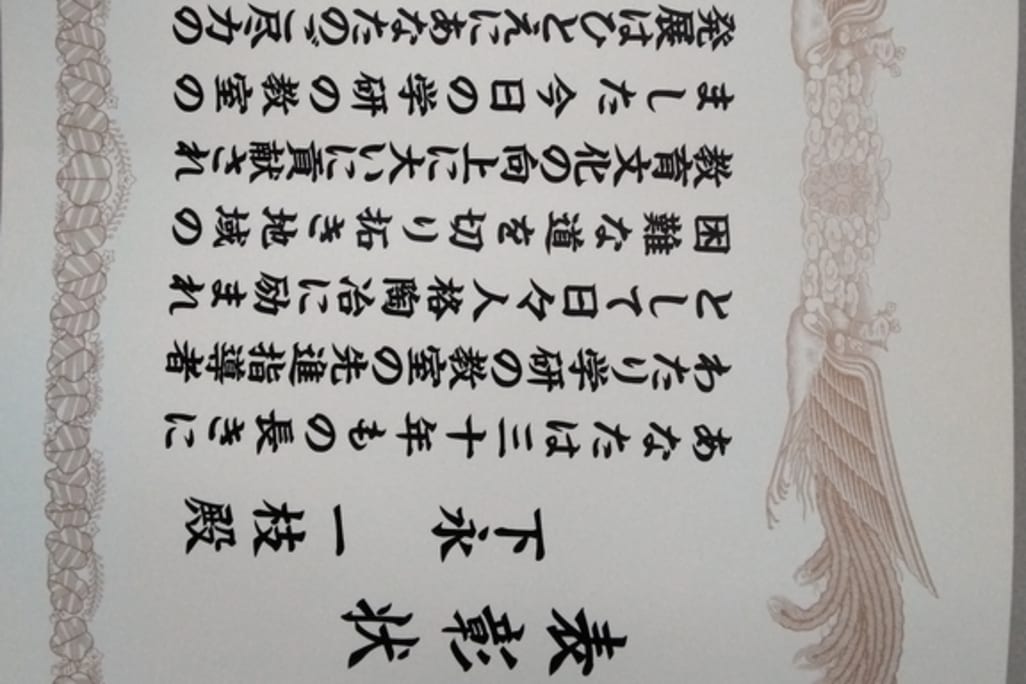 表彰状
下永 一枝 殿
あなたは三十年もの長きに
わたり学研の教室の先進指導者
として日々人格陶冶に励まれ
困難な道を切り拓き地域の
教育文化の向上に大いに貢献され
ました今日の学研の教室の
発展はひとえにあなたのご尽力の